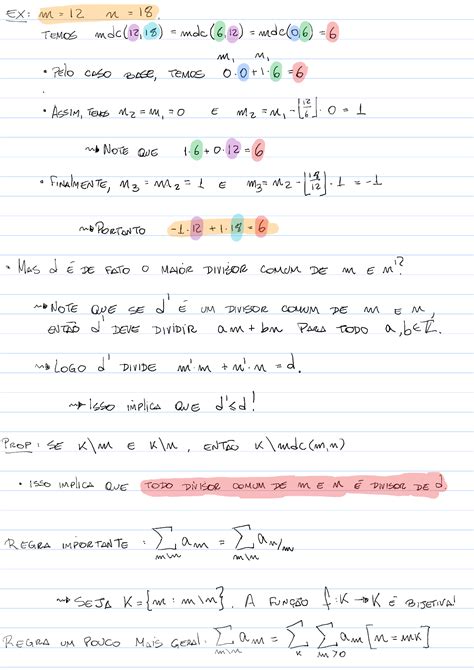 EX: m = 12 n = 18.
TEMOS mdc(12,18) = mdc(6,12) = mdc(0,6) = 6
m₁ n₁
• PELO CASO BASE, TEMOS 0·0 + 1·6 = 6
• ASSIM, TEMOS n₂ = m₁ = 0 E m₂ = n₁ - ⌊12/6⌋·0 = 1
⇝ NOTE QUE 1·6 + 0·12 = 6
• FINALMENTE, n₃ = m₂ = 1 E m₃ = n₂ - ⌊18/12⌋·1 = -1
⇝ PORTANTO -1·12 + 1·18 = 6
• MAS d É DE FATO O MAIOR DIVISOR COMUM DE m E n?
⇝ NOTE QUE SE d' É UM DIVISOR COMUM DE m E n,
ENTÃO d' DEVE DIVIDIR am + bn PARA TODO a,b∈ℤ.
⇝ LOGO d' DIVIDE m'·m + n'·n = d.
⇝ ISSO IMPLICA QUE d' ≤ d!
PROP: SE K\m E K\n, ENTÃO K\mdc(m,n)
• ISSO IMPLICA QUE TODO DIVISOR COMUM DE m E n É DIVISOR DE d
REGRA IMPORTANTE: ∑_{m\n} a_m = ∑_{m\n} a_{n/m}
⇝ SEJA K = {m : m\n}. A FUNÇÃO f: K → K É BIJETIVA!
REGRA UM POUCO MAIS GERAL: ∑_{m\n} a_m = ∑_K ∑_{m>0} a_m [n = mK]